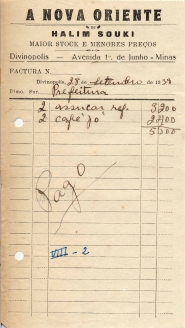 A NOVA ORIENTE
DE
HALIM SOUKI
MAIOR STOCK E MENORES PREÇOS
Divinopolis - Avenida 1º. de Junho - Minas
FACTURA N.
Divinopolis, 28 de Setembro de 1939
Illmo. Snr. Prefeitura
2 assucar ref. 3200
2 café pó 2400
5600
Pago
VIII - 2